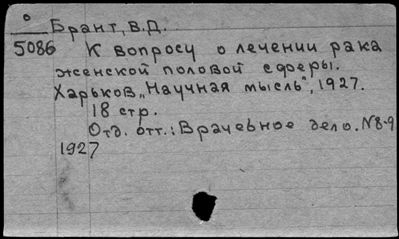 о Брант, В.Д.
5086 К вопросу о лечении рака
женской половой сферы.
Харьков, „Научная мысль", 1927.
18 стр.
Отд. отт.: Врачебное дело. N8-9
1927